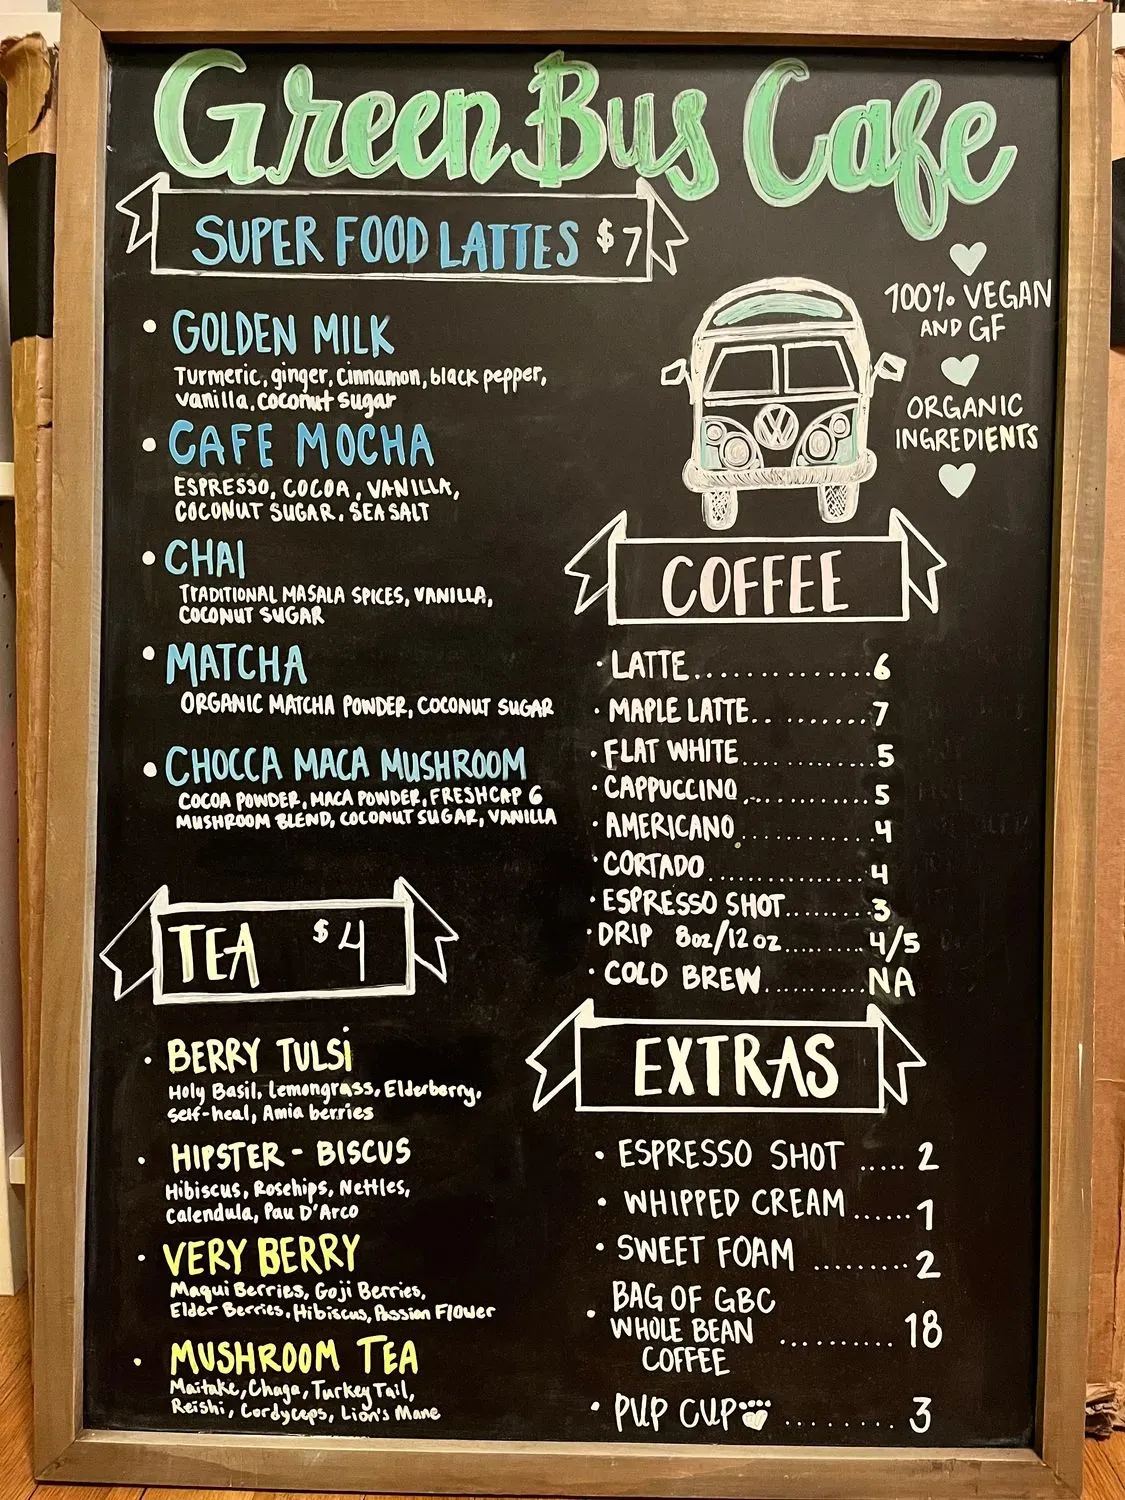 Green Bus Cafe
SUPER FOOD LATTES $7
• GOLDEN MILK
Turmeric, ginger, cinnamon, black pepper,
vanilla, coconut sugar
• CAFE MOCHA
ESPRESSO, COCOA, VANILLA,
COCONUT SUGAR, SEA SALT
• CHAI
TRADITIONAL MASALA SPICES, VANILLA,
COCONUT SUGAR
• MATCHA
ORGANIC MATCHA POWDER, COCONUT SUGAR
• CHOCCA MACA MUSHROOM
COCOA POWDER, MACA POWDER, FRESHCAP 6
MUSHROOM BLEND, COCONUT SUGAR, VANILLA
TEA $4
• BERRY TULSi
Holy Basil, Lemongrass, Elderberry,
self-heal, Amia berries
• HIPSTER - BISCUS
Hibiscus, Rosehips, Nettles,
Calendula, Pau D'Arco
• VERY BERRY
Maqui Berries, Goji Berries,
Elder Berries, Hibiscus, Passion Flower
• MUSHROOM TEA
Maitake, Chaga, Turkey Tail,
Reishi, Cordyceps, Lion's Mane
100% VEGAN
AND GF
ORGANIC
INGREDIENTS
VW
COFFEE
• LATTE..............6
• MAPLE LATTE..........7
• FLAT WHITE............5
• CAPPUCCINO............5
• AMERICANO............4
• CORTADO..............4
• ESPRESSO SHOT........3
• DRIP 8oz/12oz........4/5
• COLD BREW..........NA
EXTRAS
• ESPRESSO SHOT ..... 2
• WHIPPED CREAM ......1
• SWEET FOAM .........2
• BAG OF GBC
WHOLE BEAN .......... 18
COFFEE
• PUP CUP ........ 3